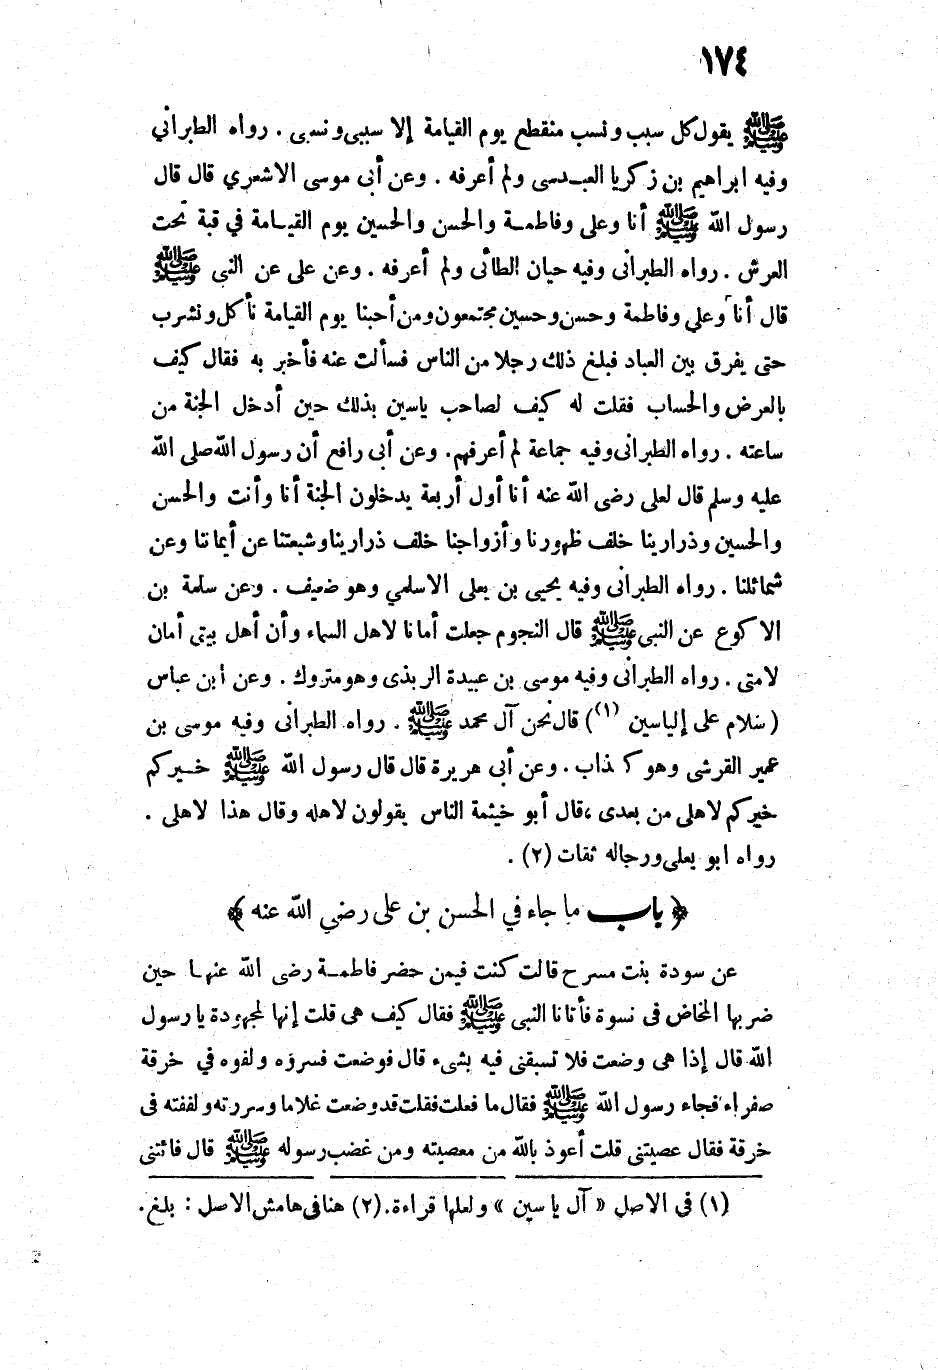 ١٧٤
ﷺ يقول كل سبب ونسب منقطع يوم القيامة إلا سببى ونسبى . رواه الطبراني
وفيه ابراهيم بن زكريا العبدسى ولم أعرفه . وعن أبى موسى الاشعري قال قال
رسول الله ﷺ أنا وعلى وفاطمة والحسن والحسين يوم القيامة في قبة تحت
العرش . رواه الطبرانى وفيه حيان الطائى ولم أعرفه . وعن على عن النبى ﷺ
قال أنا وعلي وفاطمة وحسن وحسين مجتمعون ومن أحبنا يوم القيامة نأكل ونشرب
حتى يفرق بين العباد فبلغ ذلك رجلا من الناس فسألت عنه فأخبر به فقال كيف
بالعرض والحساب فقلت له كيف لصاحب ياسين بذلك حين أدخل الجنة من
ساعته . رواه الطبرانى وفيه جماعة لم أعرفهم . وعن أبى رافع أن رسول الله صلى الله
عليه وسلم قال لعلى رضى الله عنه أنا أول أربعة يدخلون الجنة أنا وأنت والحسن
والحسين وذرارينا خلف ظهورنا وأزواجنا خلف ذرارينا وشيعتنا عن أيماننا وعن
شمائلنا . رواه الطبرانى وفيه يحيى بن يعلى الاسلمي وهو ضعيف . وعن سلمة بن
الاكوع عن النبى ﷺ قال النجوم جعلت أمانا لاهل السماء وأن أهل بيتى أمان
لامتى . رواه الطبرانى وفيه موسى بن عبيدة الربذى وهو متروك . وعن ابن عباس
( سلام على إلياسين (١) ) قال نحن آل محمد ﷺ . رواه الطبرانى وفيه موسى بن
عمير القرشى وهو كذاب . وعن أبى هريرة قال قال رسول الله ﷺ خيركم
خيركم لاهلى من بعدى ، قال أبو خيثمة الناس يقولون لاهله وقال هذا لاهلى .
رواه ابو يعلى ورجاله ثقات (٢) .
﴿ باب ما جاء في الحسن بن على رضي الله عنه ﴾
عن سودة بنت مسرح قالت كنت فيمن حضر فاطمة رضى الله عنها حين
ضربها المخاض فى نسوة فأتانا النبى ﷺ فقال كيف هى قلت إنها لمجهودة يا رسول
الله قال إذا هى وضعت فلا تسبقنى فيه بشىء قال فوضعت فسروه ولفوه في خرقة
صفراء فجاء رسول الله ﷺ فقال ما فعلت فقلت قد وضعت غلاما وسررته ولففته فى
خرقة فقال عصيتنى قلت أعوذ بالله من معصيته ومن غضب رسوله ﷺ قال فائتنى
(١) فى الاصل « آل ياسين » ولعلها قراءة . (٢) هنا فى هامش الاصل : بلغ .